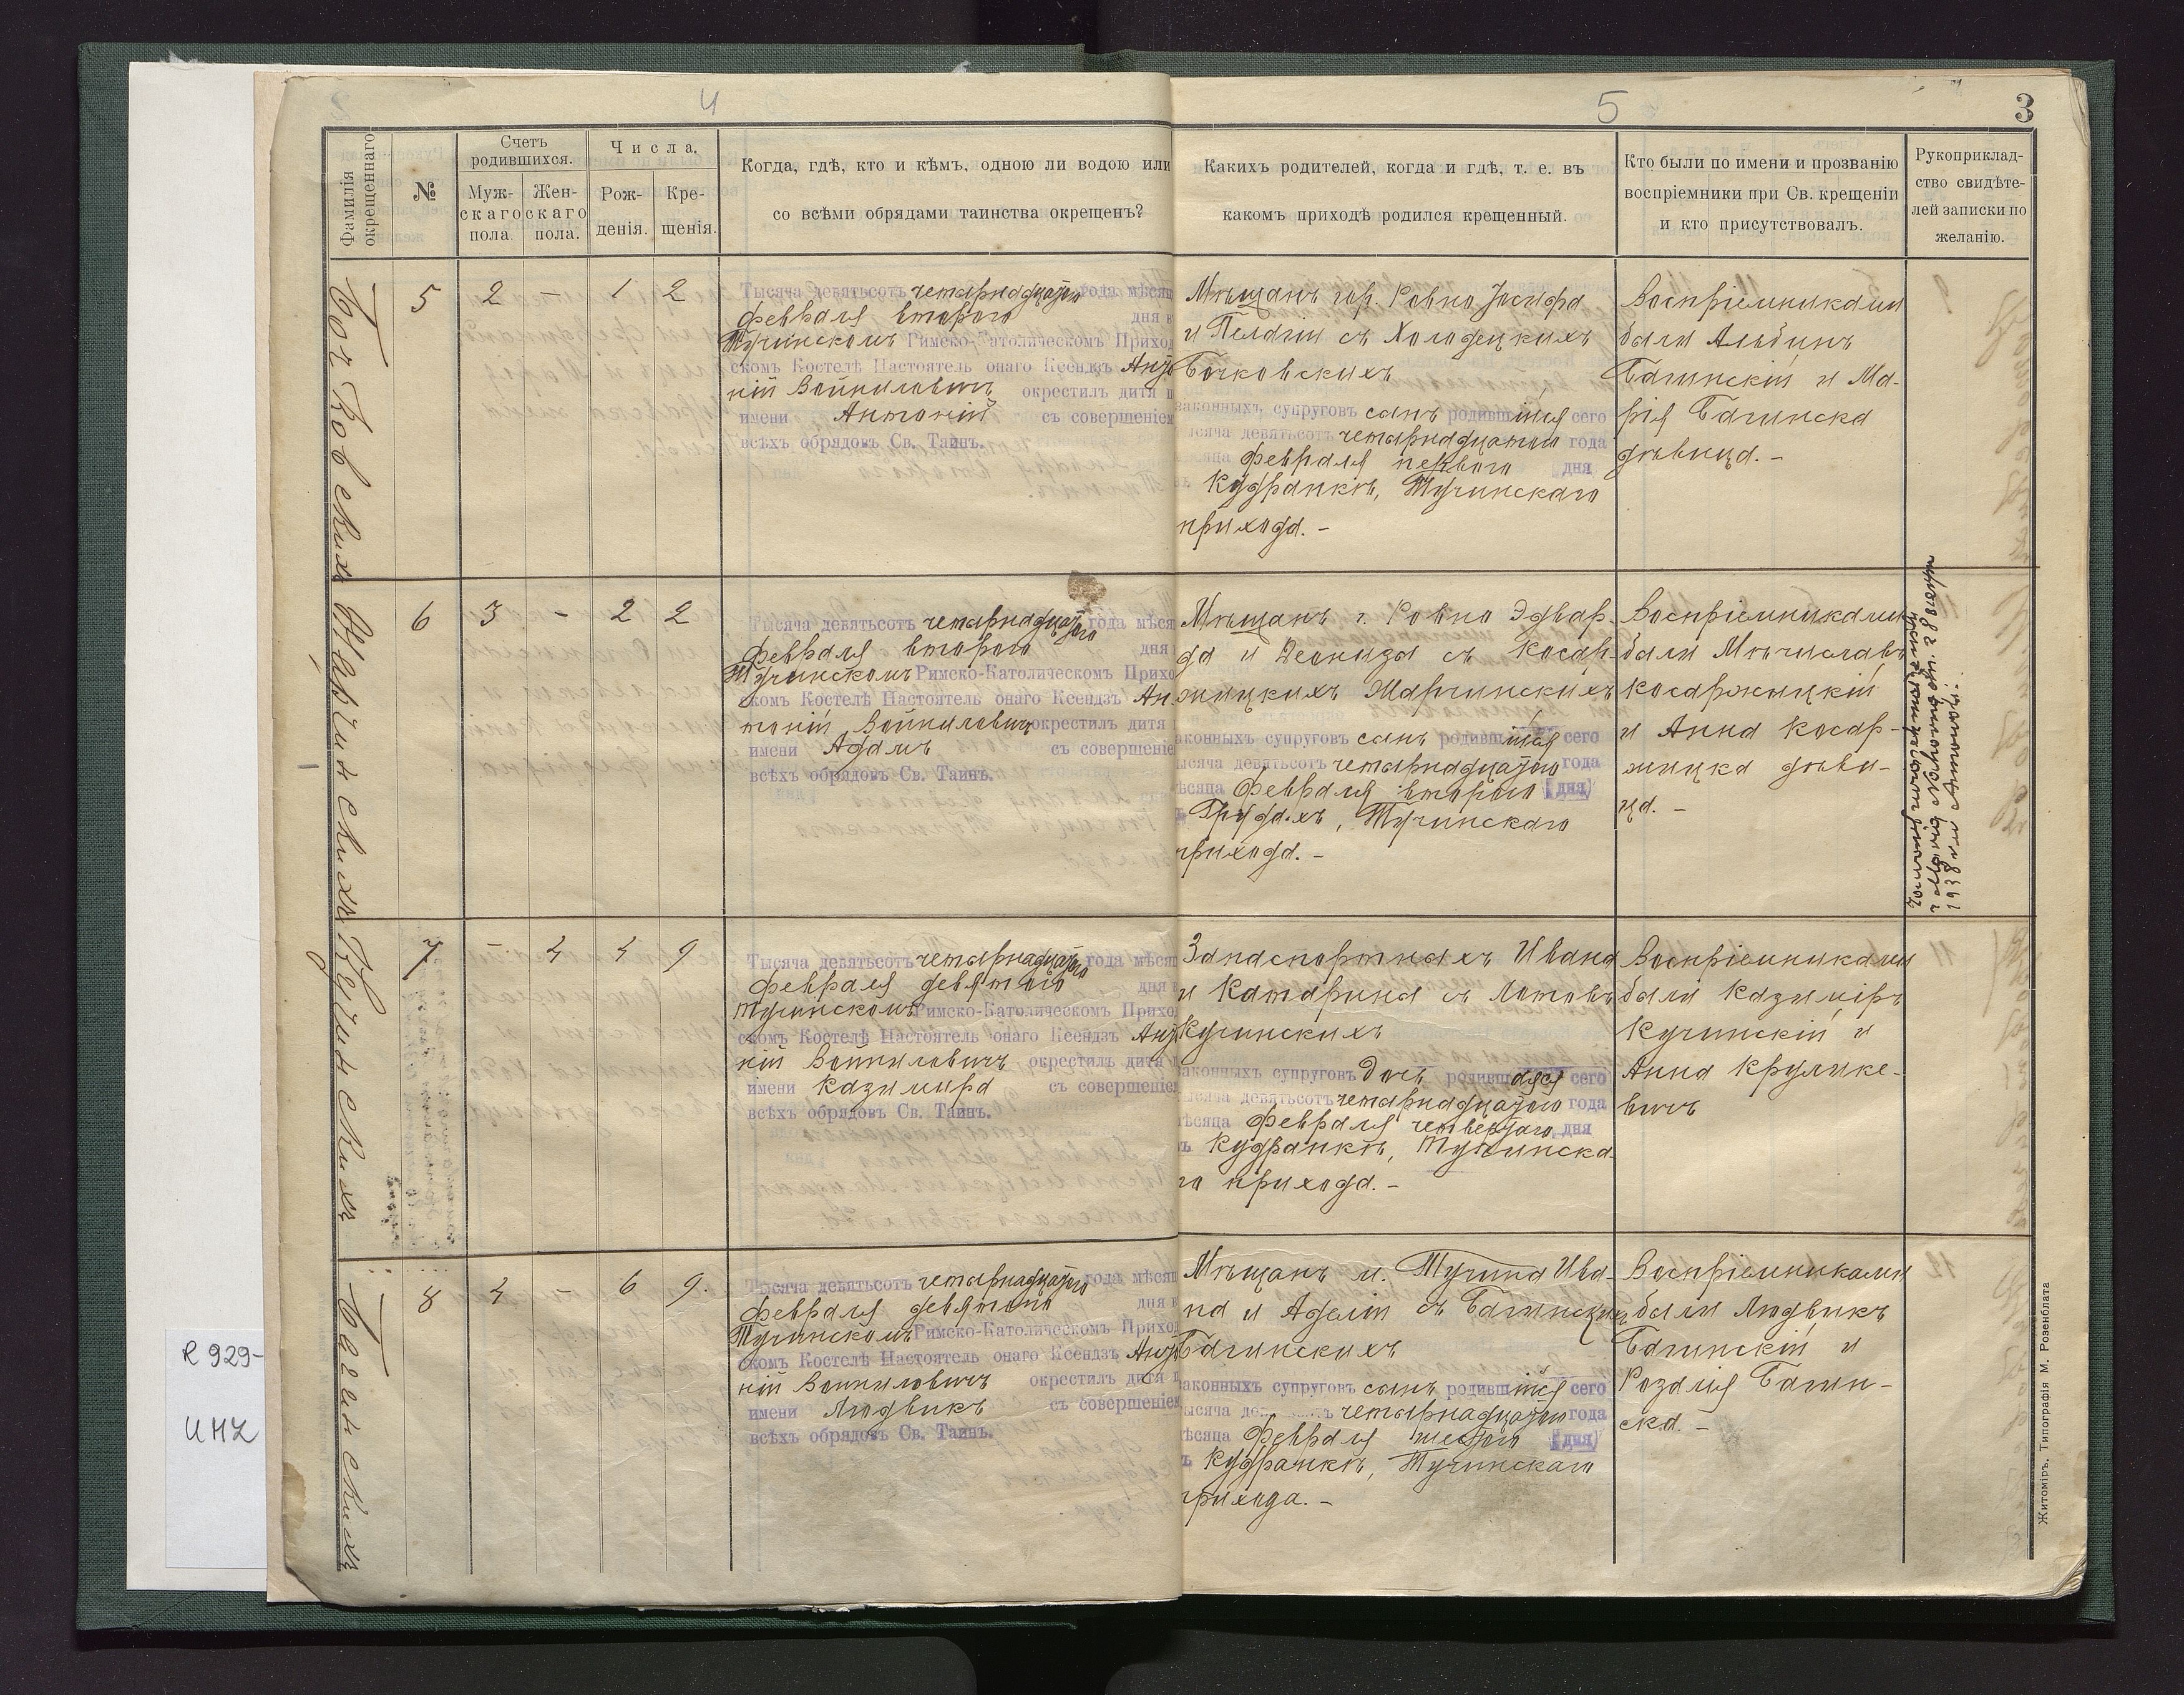 4
5
3
Фамилія окрещеннаго
№
Счетъ родившихся.
Муж-
скаго
пола.
Жен-
скаго
пола.
Числа.
Рож-
денія.
Кре-
щенія.
Когда, гдѣ, кто и кѣмъ, одною ли водою или
со всѣми обрядами таинства окрещенъ?
Какихъ родителей, когда и гдѣ, т. е. въ
какомъ приходѣ родился крещенный.
Кто были по имени и прозванію
воспріемники при Св. крещеніи
и кто присутствовалъ.
Рукоприклад-
ство свидѣте-
лей записки по
желанію.
Бочковскихъ
5 2 – 1 2
Тысяча девятьсотъ четырнадцатого года мѣсяц
февраля второго дня в
Тучинскомъ Римско-Католическомъ Прихо
скомъ Костелѣ Настоятель онаго Ксендзъ Анто
ній Войниловичъ окрестилъ дитя п
имени Антоній съ совершеніем
всѣхъ обрядовъ Св. Таинъ.
Мѣщанъ гор. Ровно Іосифа
и Пелагіи съ Холодецкихъ
Бочковскихъ
законныхъ супруговъ сынъ родившійся сего
тысяча девятьсотъ четырнадцатого года
мѣсяца февраля первого дня
въ Кудранкѣ, Тучинскаго
прихода. –
Воспріемниками
были Альбинъ
Багинскій и Ма-
рія Багинска
дѣвица. –
Марчинскихъ
6 3 – 2 2
Тысяча девятьсотъ четырнадцатого года мѣся
февраля второго дня
Тучинскомъ Римско-Католическомъ Прихо
скомъ Костелѣ Настоятель онаго Ксендзъ Ан-
тоній Войниловичъ окрестилъ дитя
имени Адамъ съ совершеніе
всѣхъ обрядовъ Св. Таинъ.
Мѣщанъ г. Ровно Эдвар-
да и Деонизы съ Косар-
жицкихъ Марчинскихъ
законныхъ супруговъ сынъ родившійся сего
тысяча девятьсотъ четырнадцатого года
мѣсяца февраля второго дня
въ Грудахъ, Тучинскаго
прихода. –
Воспріемниками
были Мѣчиславъ
Косаржицкій
и Анна Косар-
жицка дѣви-
ца. –
Кучинскихъ
7 – 4 4 9
Тысяча девятьсотъ четырнадцатого года мѣсяц
февраля девятого дня в
Тучинскомъ Римско-Католическомъ Прихо
скомъ Костелѣ Настоятель онаго Ксендзъ Анто
ній Войниловичъ окрестилъ дитя п
имени Казимира съ совершеніем
всѣхъ обрядовъ Св. Таинъ.
Запаспортныхъ Ивана
и Катарины съ Лотовъ
Кучинскихъ
законныхъ супруговъ дочь родившаяся сего
тысяча девятьсотъ четырнадцатого года
мѣсяца февраля четвертого дня
въ Кудранкѣ, Тучинска-
го прихода. –
Воспріемниками
были Казиміръ
Кучинскій и
Анна Круликe-
вичъ
Багинскихъ
8 4 – 6 9.
Тысяча девятьсотъ четырнадцатого года мѣсяц
февраля девятого дня в
Тучинскомъ Римско-Католическомъ Приход
скомъ Костелѣ Настоятель онаго Ксендзъ Анто
ній Войниловичъ окрестилъ дитя п
имени Людвикъ съ совершеніем
всѣхъ обрядовъ Св. Таинъ.
Мѣщанъ м. Тучина Ива-
на и Аделіи съ Багинскихъ
Багинскихъ
законныхъ супруговъ сынъ родившійся сего
тысяча четырнадцатого года
мѣсяца февраля шестого дня
въ Кудранкѣ, Тучинскаго
прихода. –
Воспріемниками
были Людвикъ
Багинскій и
Розалія Багин-
ска. –
Житоміръ, Типографія М. Розенблата
R 929-
UHZ